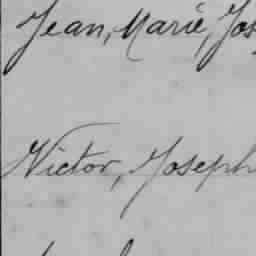 Jean, Marie, Jos
Victor, Joseph